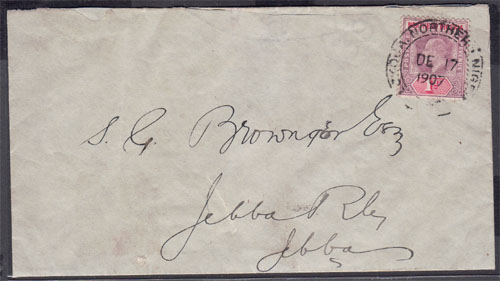 NORTHERN NIGE
DE 17
1907
S. G. Brown Esq
Jebba Rly
Jebba